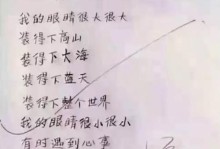 我的眼睛很大很大
装得下高山
装得下大海
装得下蓝天
装得下整个世界
我的眼睛很小很小
有时遇到心事